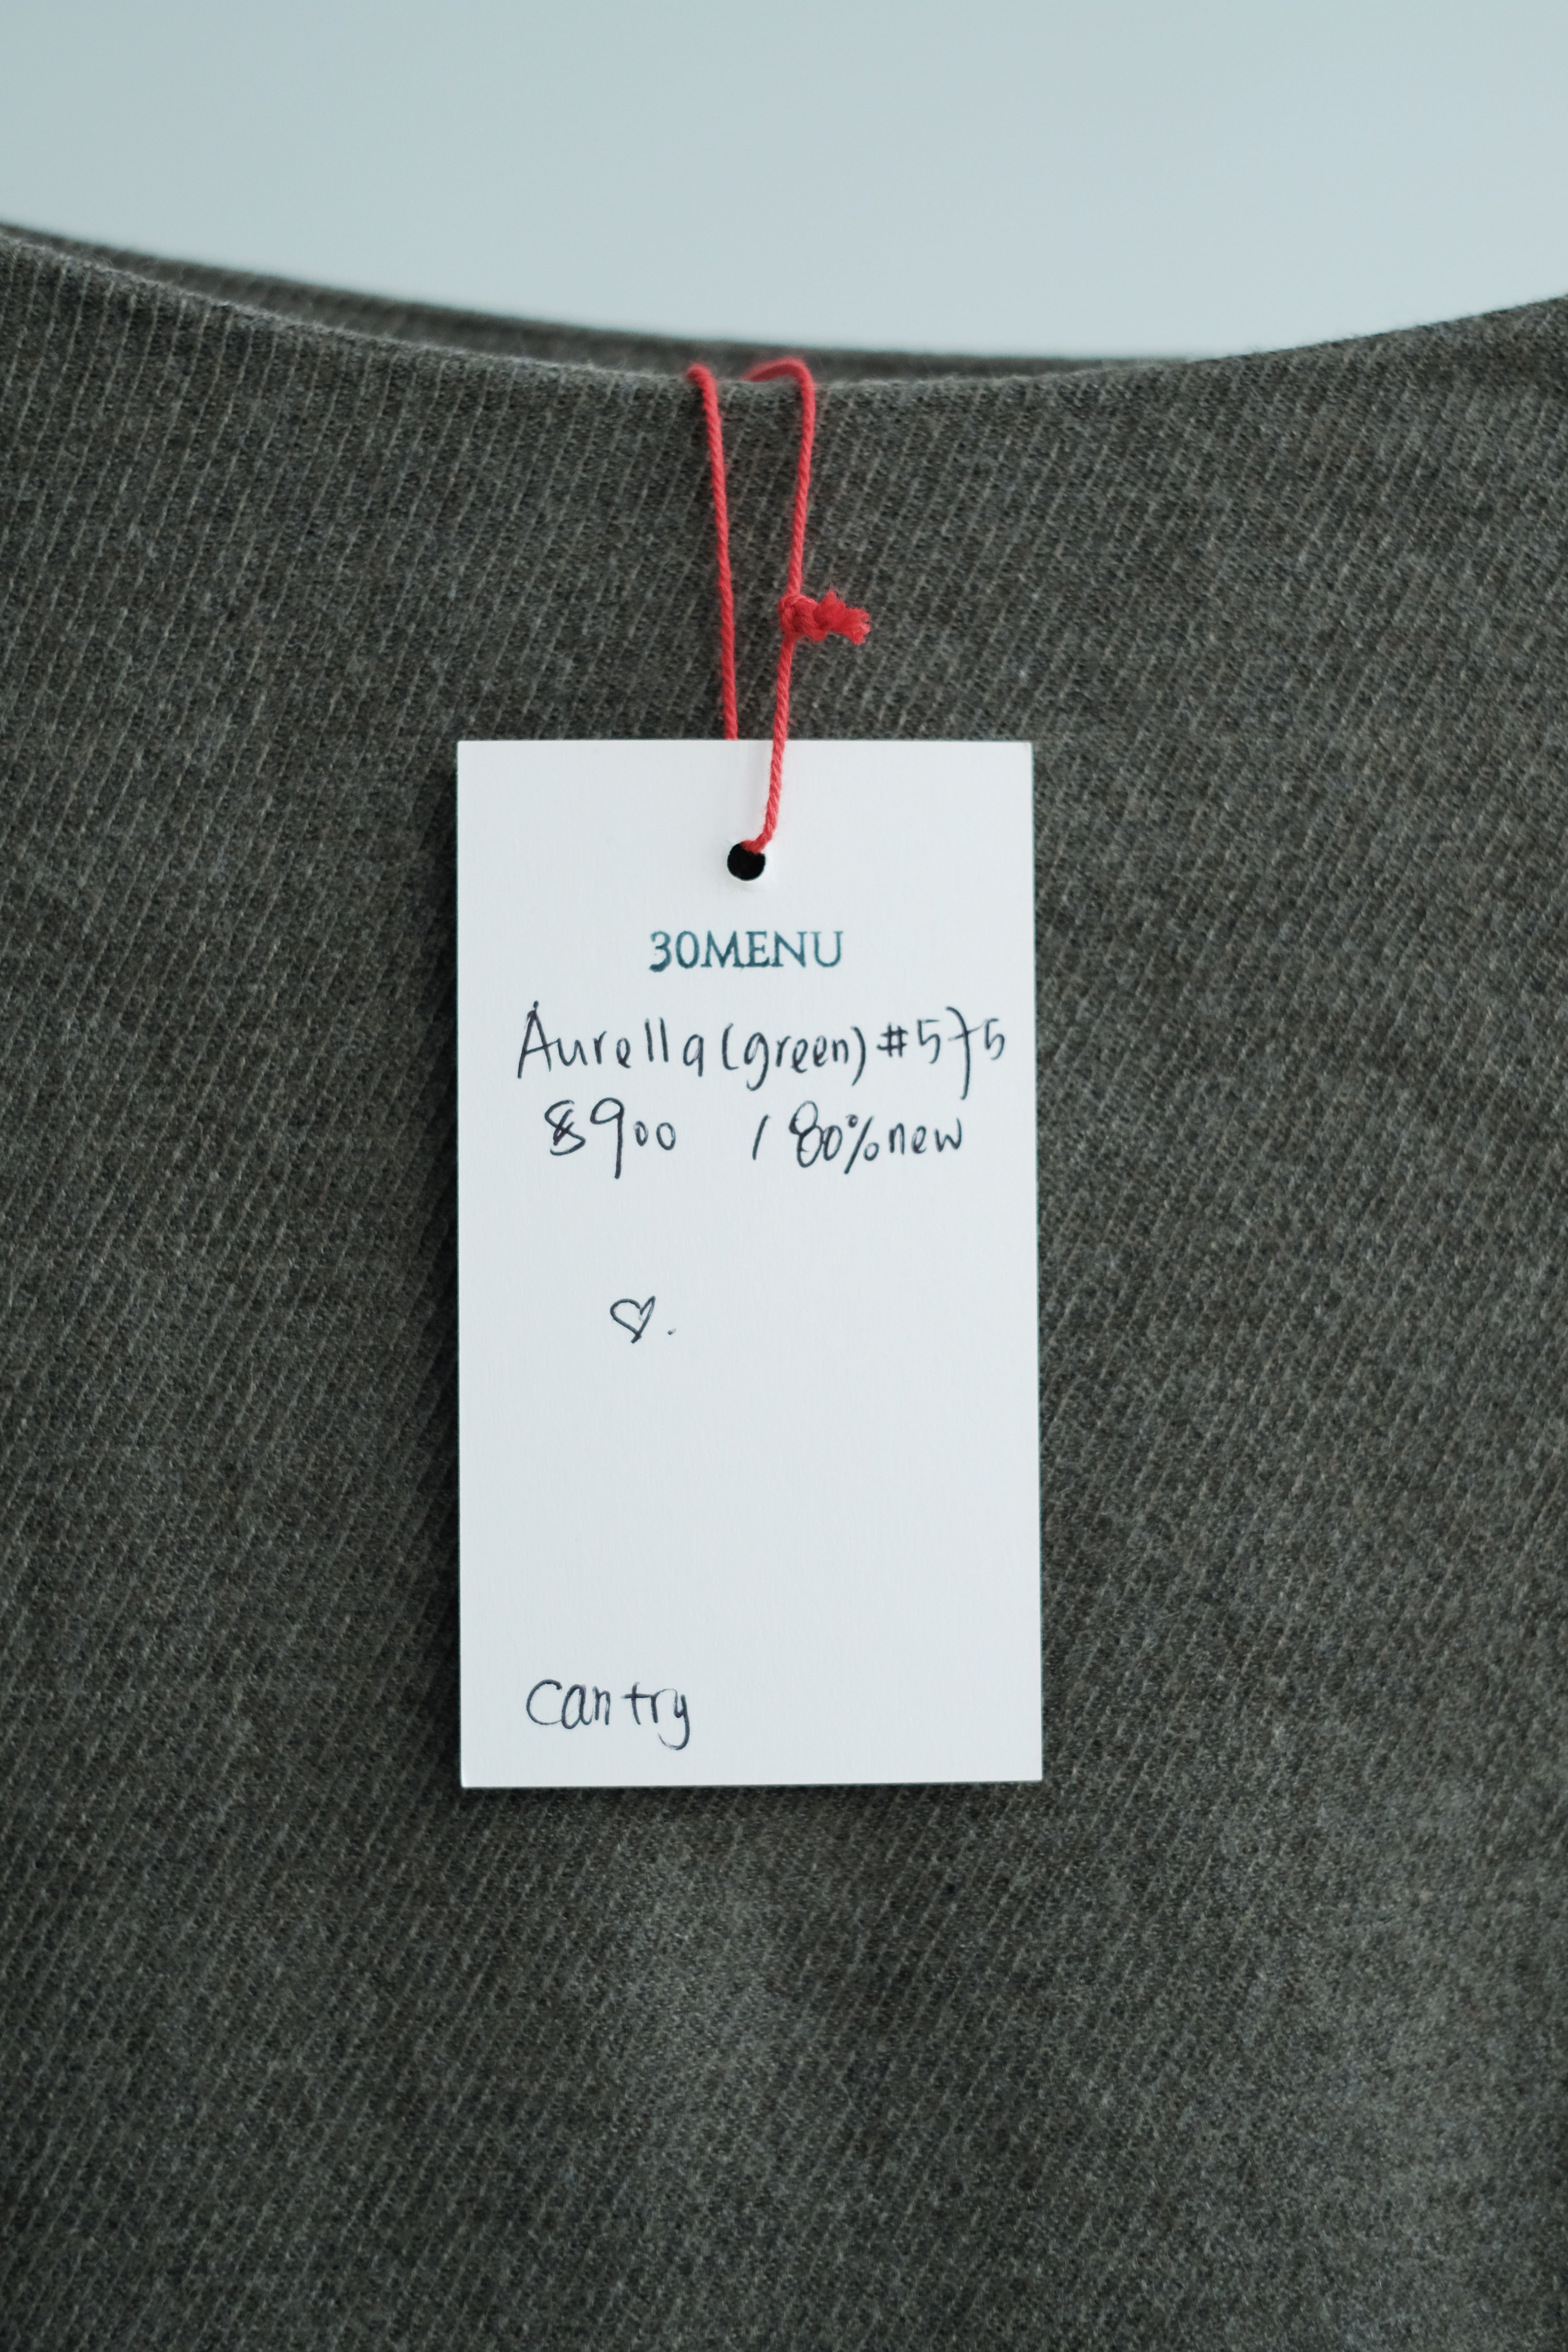 30MENU
Aurella (green) #575
$900 / 80% new
♡.
can try